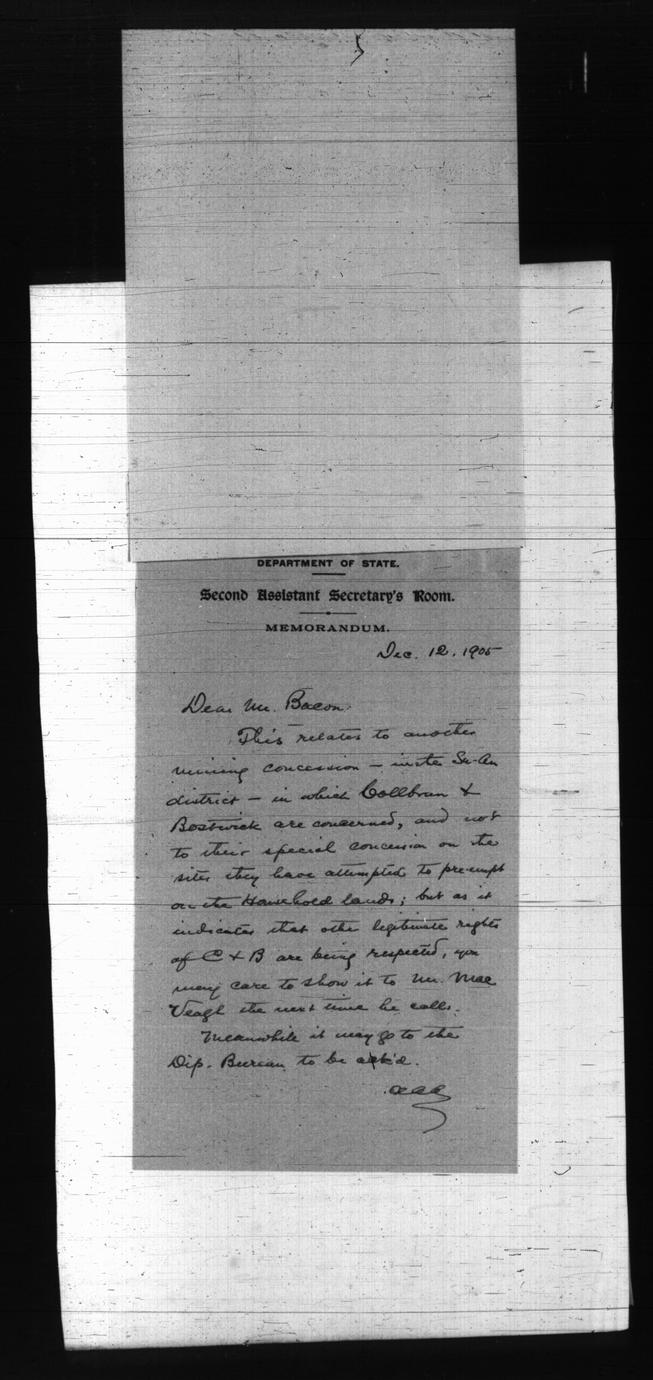 DEPARTMENT OF STATE.
Second Assistant Secretary's Room.
MEMORANDUM.
Dec. 12, 1905
Dear Mr. Bacon:
This relates to another
mining concession – in the Su-An
district – in which Collbran &
Bostwick are concerned, and not
to their special concession on the
sites they have attempted to pre-empt
on the Household lands; but as it
indicates that other legitimate rights
of C & B are being respected, you
may care to show it to Mr. Mac
Veagh the next time he calls.
Meanwhile it may go to the
Dip. Bureau to be ack'd.
AAA